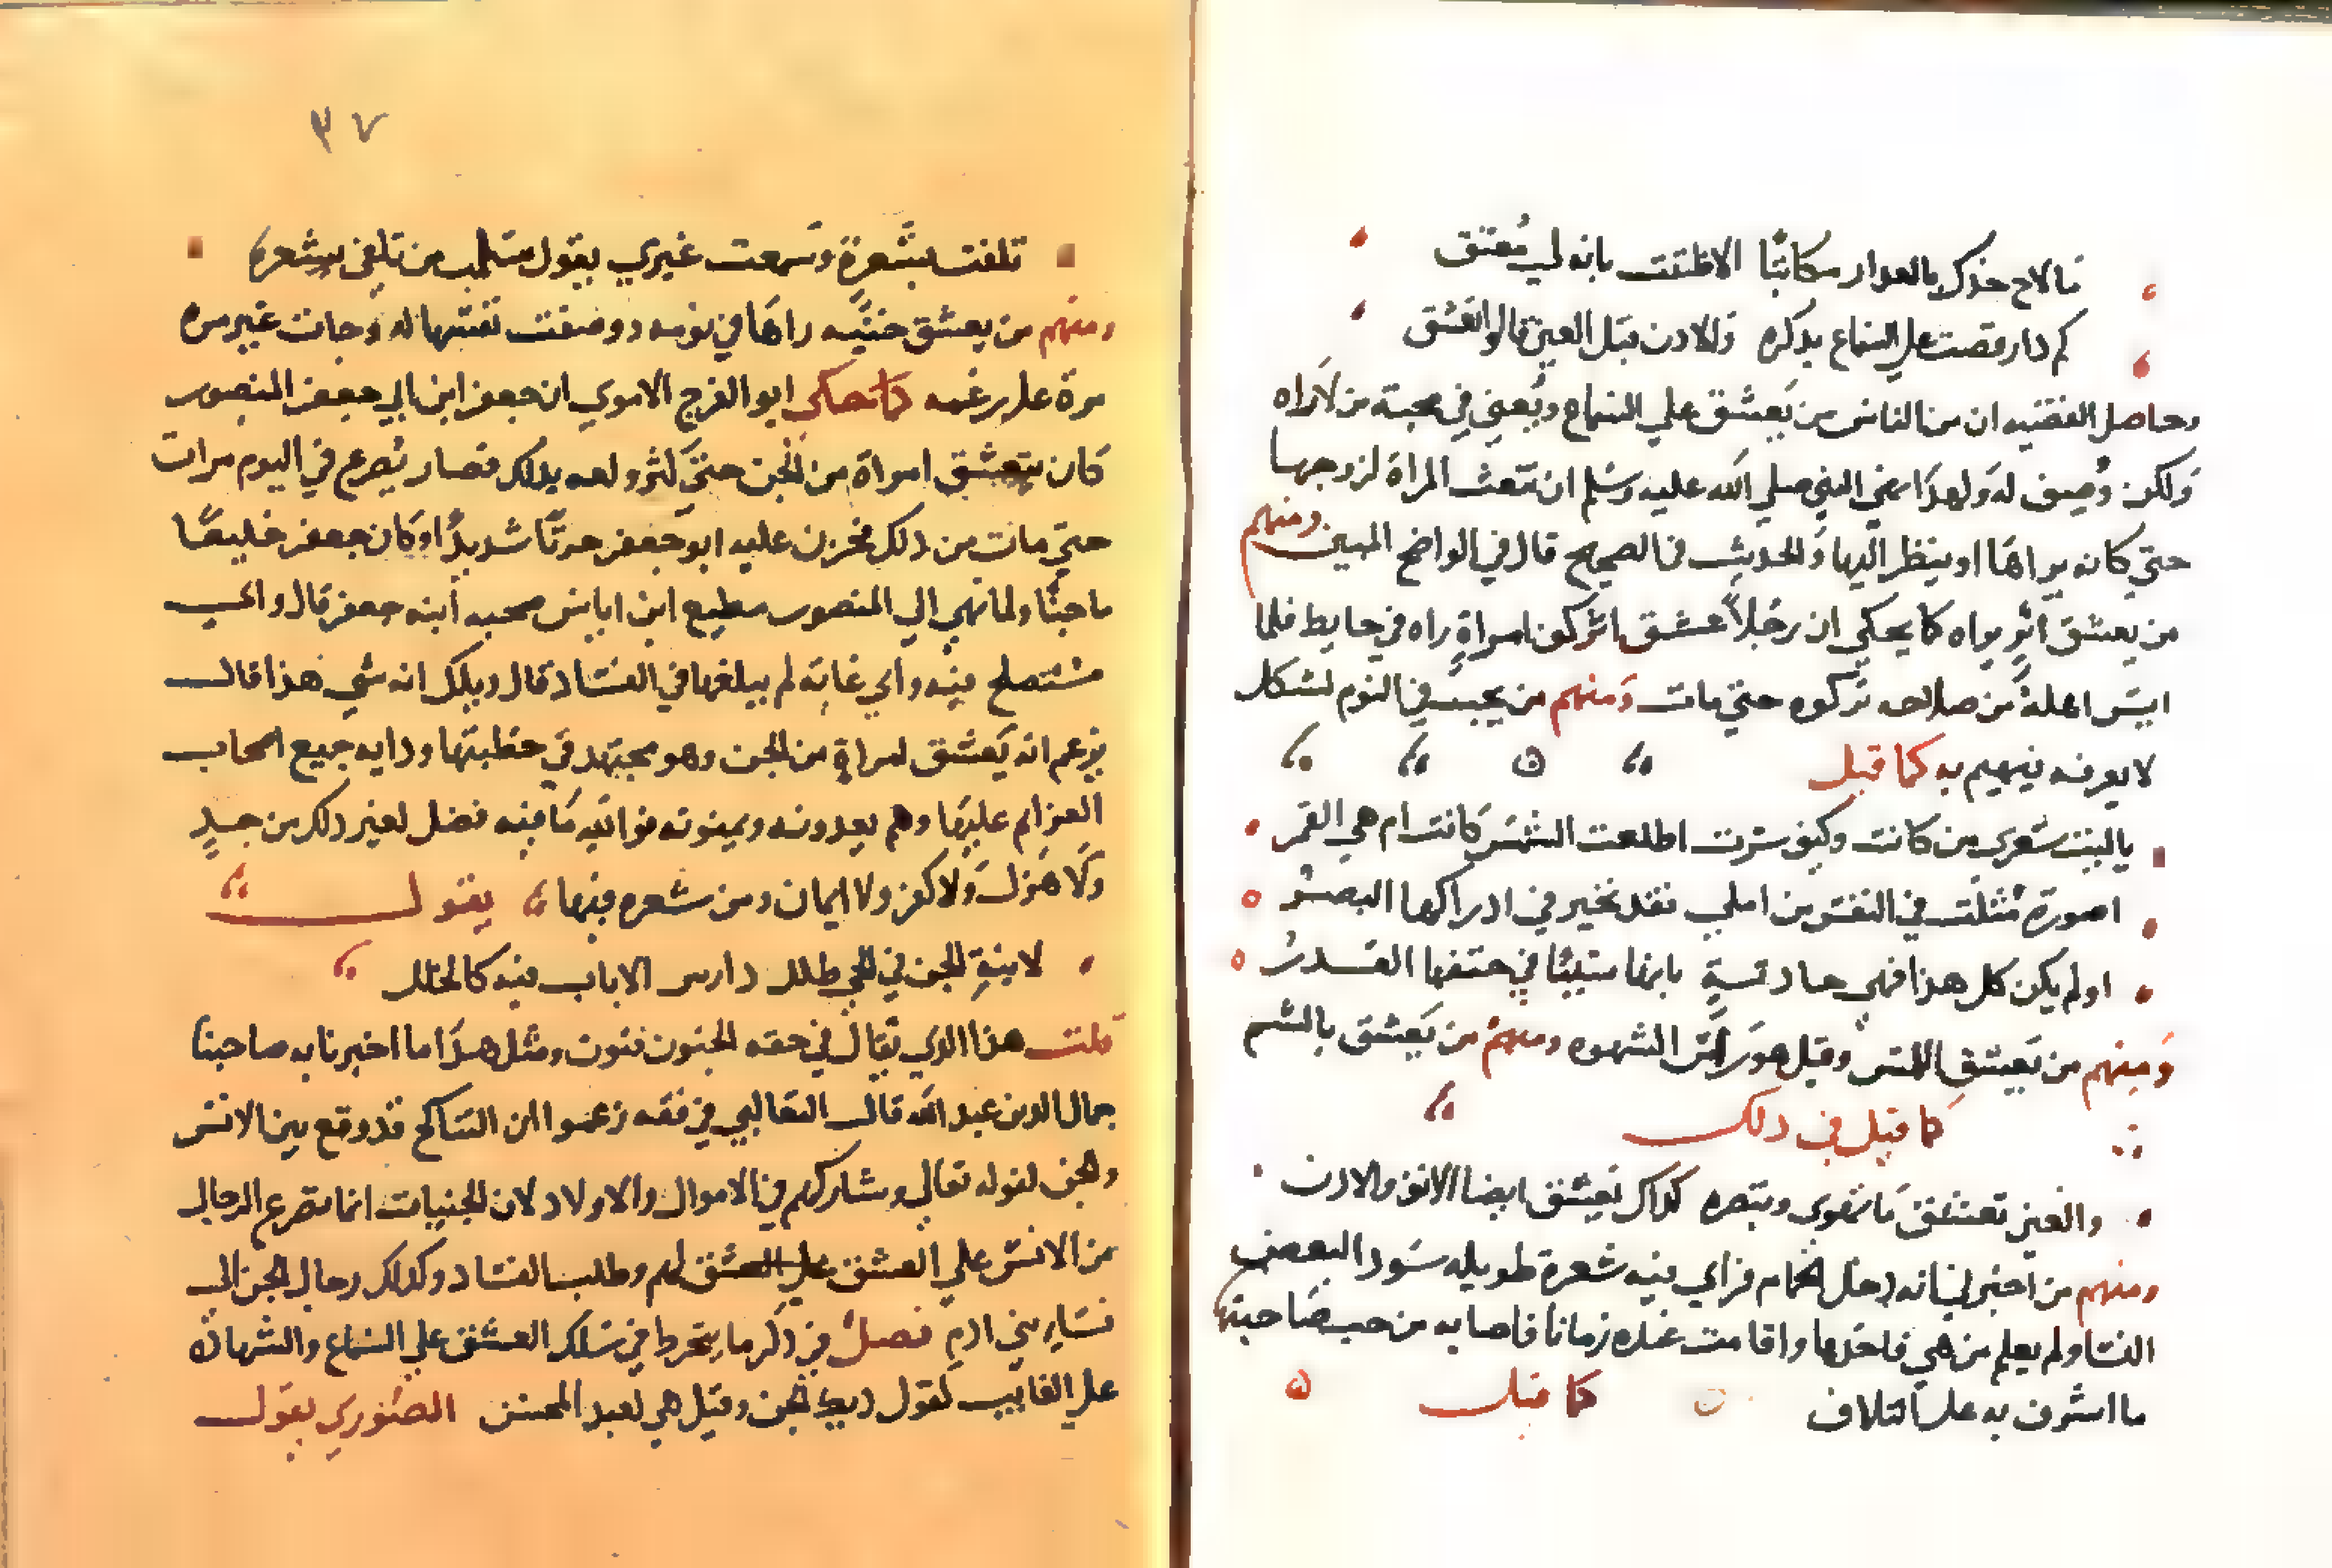 ما لاح خدك بالعدار مكاتبا الا ظننت بانه لي معتق
كم دار قصت علي السماع بذكره والادن قبل العين قالوا تعشق
وحاصل القضيه ان من الناس من يعشق علي السماع ويعني في محبة من لا راه
ولكن وصف له ولهذا نهي النبي صلي الله عليه وسلم ان تنعت المراة لزوجها
حتي كانه يراها او ينظر اليها والحديث في الصحيح قال في الواضح المبين ومنهم
من يعشق اثر يراه كما يحكي ان رجلا عشق اثر كف امراة راه في حايط فلما
ايس اهله من صلاحه تركوه حتي مات ومنهم من يحب في النوم لشكل
لا يعرفه فيهيم به كما قيل
يا ليت شعري من كانت وكيف سرت اطلعت الشمس كانت ام هي القمر
اصورة مثلت في النفس من املي فقد تحير في ادراكها البصر
او لم يكن كل هذا فهي حادثة ياتي بها سببا في حتفها القدر
ومنهم من يعشق اللمس وقيل هو راس الشهوه ومنهم من يعشق بالشم
كما قيل في ذلك
والعين تعشق ما تهوي وتبصره كذاك تعشق ايضا الانف والادن
ومنهم من اخبرني انه دخل الحمام فراي فيه شعرة طويله سودا لبعض
النسا ولم يعلم من هي فاخدها واقامت عنده زمانا فاصابه من حب صاحبتها
ما اشرف به علي التلاف كما قيل
٣٧
تلفت بشعرة وسمعت غيري يقول سلمت من تلفي بشعره
ومنهم من يعشق جنيه راها في نومه ووصفت نفسها له وجات غير مره
مرة علي رغمه كما حكي ابو الفرج الاموي ان جعفر ابن ابي جعفر المنصور
كان يتعشق امراة من الجن حتي كثر ولعه بذلك فصار يصرع في اليوم مرات
حتي مات من ذلك فحزن عليه ابو جعفر حزنا شديدا وكان جعفر خليعا
ماجنا ولما نهي الي المنصور مطيع ابن اياس صحبه ابنه جعفر قال واي
مستصلح فيه واي غاية لم يبلغها في الفساد قال ويلك انه شي هذا قال
يزعم انه يعشق امراة من الجن وهو مجتهد في خطبتها ودايه جميع اصحاب
العزايم عليها وهم يعدونه ويمنونه فوالله ما فيه فضل لغير ذلك من جد
ولا هزل ولا كفر ولا ايمان ومن شعره فيها يقول
لابنة الجن في الحي طلل دارس الايات فيه كالخلل
قلت هذا الذي يقال في حقه الجنون فنون ومثل هذا ما اخبرنا به صاحبنا
جمال الدين عبد الله قال الثعالبي في فقه زعموا ان التناكح قد وقع بين الانس
والجن لقوله تعالي وشاركهم في الاموال والاولاد لان الجنيات انما تصرع الرجال
من الانس علي العشق علي العشق لهم وطلب الفساد وكذلك رجال الجن الي
نساء بني ادم فصل في ذكر ما ينخرط في سلك العشق علي السماع والشهادة
علي الغايب كقول ديك الجن وقيل هي لعبد المحسن الصنوري يقول